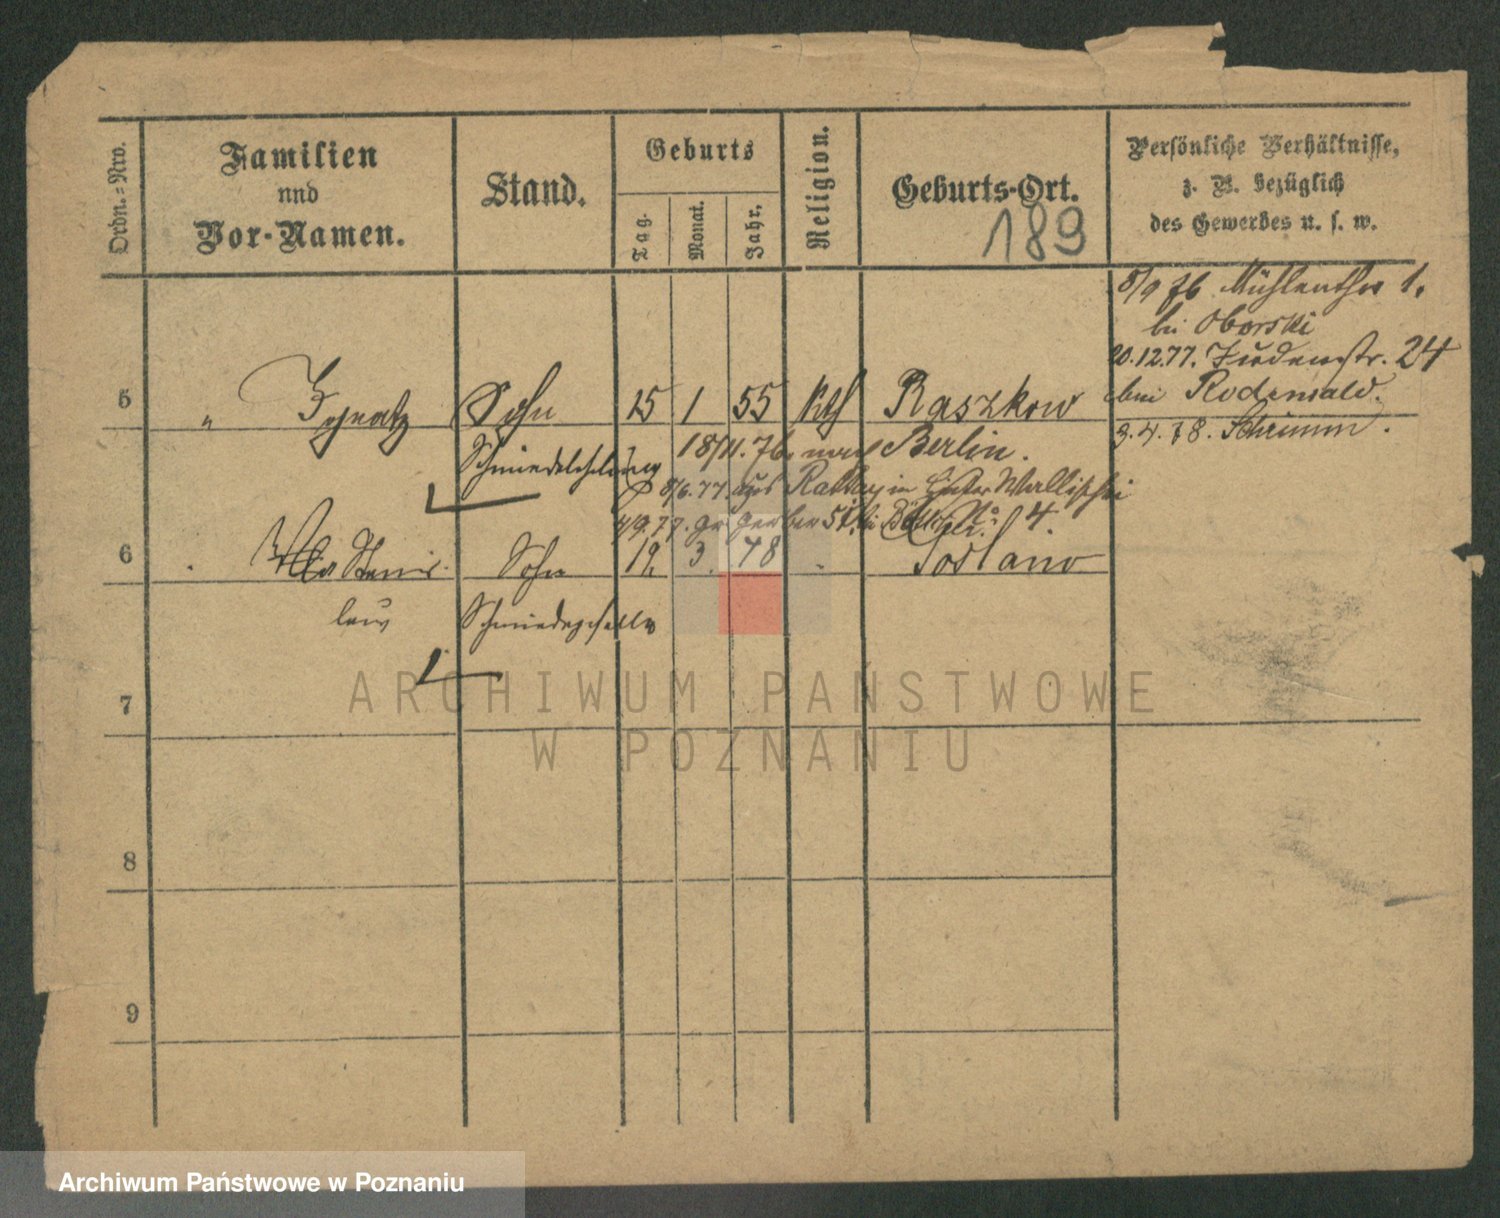 Ordn.=Nro.
Familien
und
Vor-Namen.
Stand.
Geburts
Tag.
Monat.
Jahr.
Religion.
Geburts-Ort.
189
Persönliche Verhältnisse,
z. B. bezüglich
des Gewerbes u. s. w.
8/9 76 Mühlenthor 1.
bei Oborski
20.12.77. Judenstr. 24
bei Rodewald.
3.4.78. Schrimm.
5 " Ignatz Sohn 15 1 55 kth Raszkow
Schmiedelehrling 18/11. 76. nach Berlin.
8/6.77 aus in Wallischei
4/9.77. gr gerber 51. bei No 4.
6 " Stanis Sohn 19 3. 48 "
laus Schmiedegeselle
7
8
9
ARCHIWUM PAŃSTWOWE
W POZNANIU
Archiwum Państwowe w Poznaniu